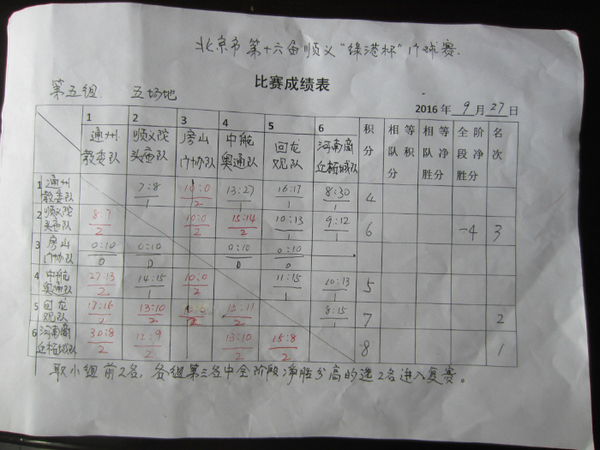 北京市第十六届顺义"绿港杯"门球赛.
比赛成绩表
第五组 五场地
2016 年 9 月 27 日
1 2 3 4 5 6
通州 顺义 房山 中能 回龙 河南商 积 相等 相等 全阶 名
教委队 头庙队 门协队 奥通队 观队 丘 城队 分 队积 队净 段净 次
分 胜分 胜分
1 通州 7:8 10:0 13:27 16:17 8:30 4
教委队 1 2 1 1 1
2 顺义 8:7 10:0 15:14 10:13 9:12 6 -4 3
头庙队 2 2 2 1 1
3 房山 0:10 0:10 0:10 0:10
门协队 0 0 0 0
4 中能 27:13 14:15 10:0 11:15 10:13 5
奥通队 2 1 2 1 1
5 回龙 17:16 13:10 15:11 8:15 7 2
观队 2 2 2 2 1
6 河南商 30:8 12:9 13:10 15:8 8 1
丘 城队 2 2 2 2
取小组前2名,各组第三名中全阶段净胜分高的选2名进入复赛。